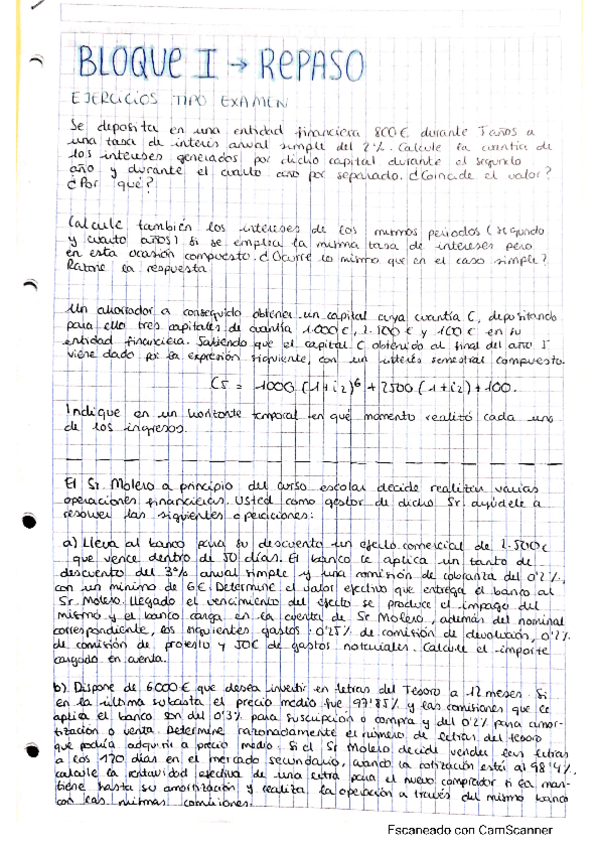 BLOQUE I → REPASO
EJERCICIOS TIPO EXAMEN
Se deposita en una entidad financiera 800€ durante 5 años a
una tasa de interés anual simple del 2%. Calcule la cuantía de
los intereses generados por dicho capital durante el segundo
año y durante el cuarto año por separado. ¿Coincide el valor?
¿Por qué?
Calcule también los intereses de los mismos periodos (segundo
y cuarto años) si se emplea la misma tasa de intereses pero
en esta ocasión compuesto. ¿Ocurre lo mismo que en el caso simple?
Razone la respuesta
Un ahorrador a conseguido obtener un capital cuya cuantía C, depositando
para ello tres capitales de cuantía 1.000€, 2.500€ y 100€ en su
entidad financiera. Sabiendo que el capital C obtenido al final del año 5
viene dado por la expresión siguiente, con un interés semestral compuesto.
C5 = 1000(1+i2)^6 + 2500(1+i2)+100.
Indique en un horizonte temporal en qué momento realizó cada uno
de los ingresos.
El Sr Molero a principio del curso escolar decide realizar varias
operaciones financieras. Usted como gestor de dicho Sr. ayúdele a
resolver las siguientes operaciones:
a) Lleva al banco para su descuento un efecto comercial de 2.500€
que vence dentro de 50 días. El banco le aplica un tanto de
descuento del 3% anual simple y una comisión de cobranza del 0'2%,
con un mínimo de 6€. Determine el valor efectivo que entrega el banco al
Sr Molero. Llegado el vencimiento del efecto se produce el impago del
mismo y el banco carga en la cuenta de Sr Molero, además del nominal
correspondiente, los siguientes gastos: 0'25% de comisión de devolución, 0'2%
de comisión de protesto y 50€ de gastos notariales. Calcule el importe
cargado en cuenta.
b) Dispone de 6000€ que desea invertir en letras del Tesoro a 12 meses. Si
en la última subasta el precio medio fue 97'85% y las comisiones que le
aplica el banco son del 0'3% para suscripción o compra y del 0'2% para amor-
tización o venta. Determine razonadamente el número de letras del tesoro
que podría adquirir a precio medio. Si el Sr Molero decide vender las letras
a los 170 días en el mercado secundario, cuando la cotización está al 98'4%,
calcule la rentabilidad efectiva de una letra para el nuevo comprador si la man-
tiene hasta su amortización y realiza la operación a través del mismo banco
con las mismas comisiones.
Escaneado con CamScanner